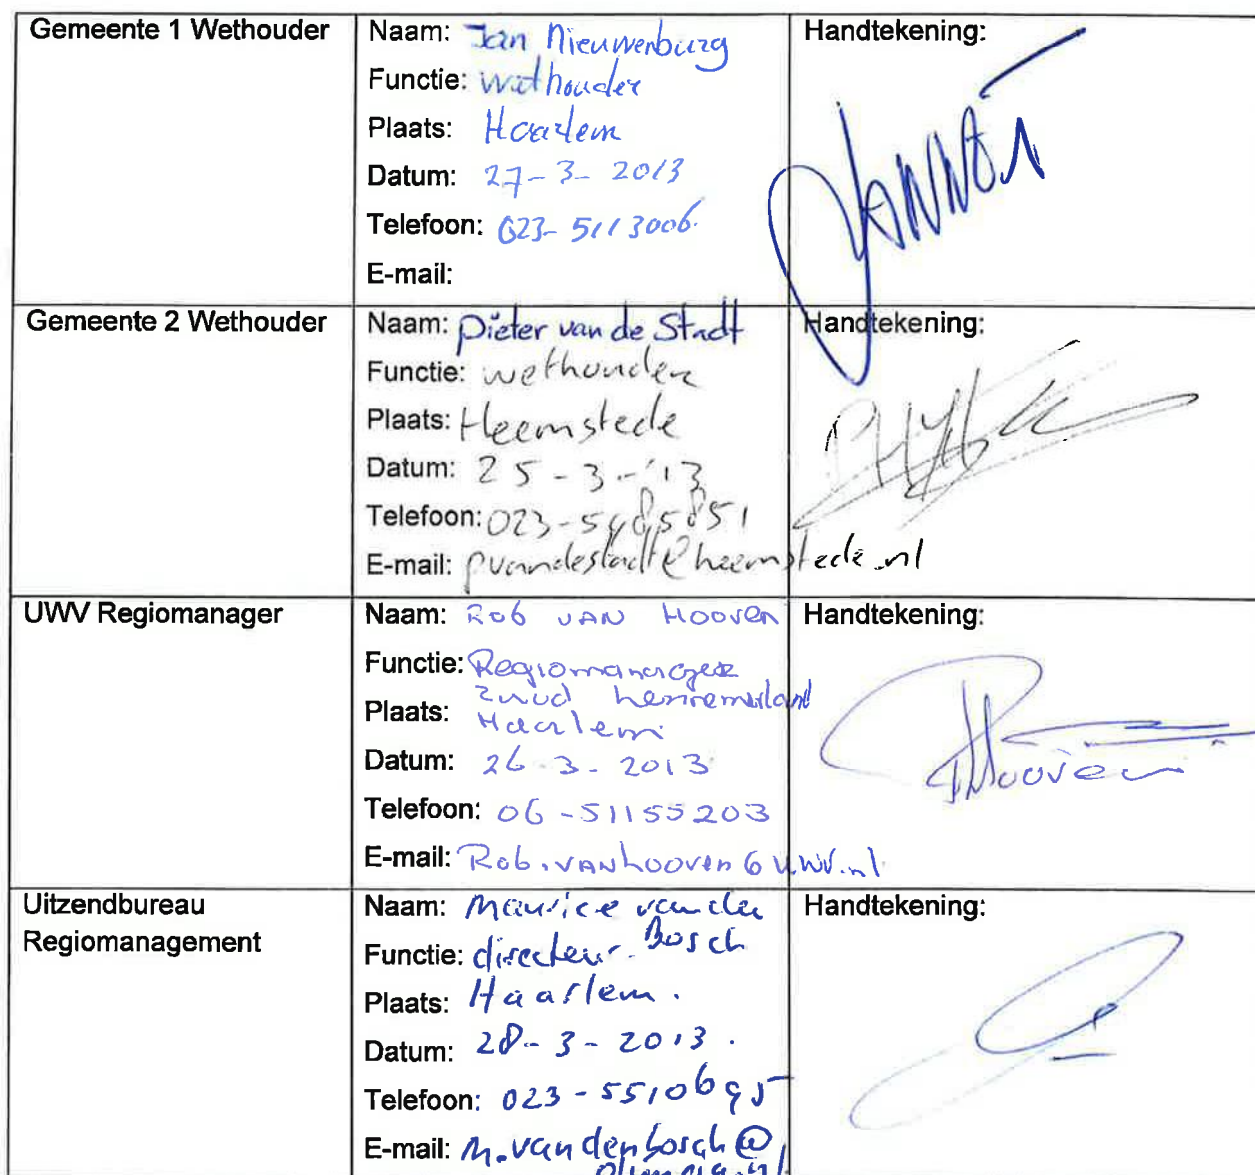 Gemeente 1 Wethouder
Naam: Jan Nieuwenburg
Functie: wethouder
Plaats: Haarlem
Datum: 27-3-2013
Telefoon: 023-5113006.
E-mail:
Handtekening:
Gemeente 2 Wethouder
Naam: Pieter van de Stadt
Functie: wethouder
Plaats: Heemstede
Datum: 25-3-'13
Telefoon: 023-5485851
E-mail: pvandestadt@heemstede.nl
Handtekening:
UWV Regiomanager
Naam: Rob van Hooven
Functie: Regiomanager
Zuid Kennemerland
Plaats: Haarlem
Datum: 26-3-2013
Telefoon: 06-51155203
E-mail: Rob.vanhooven@uwv.nl
Handtekening:
Hooven
Uitzendbureau
Regiomanagement
Naam: Maurice van den
Bosch
Functie: directeur.
Plaats: Haarlem.
Datum: 28-3-2013.
Telefoon: 023-5510695
E-mail: M.vandenbosch@
olympia.nl
Handtekening: